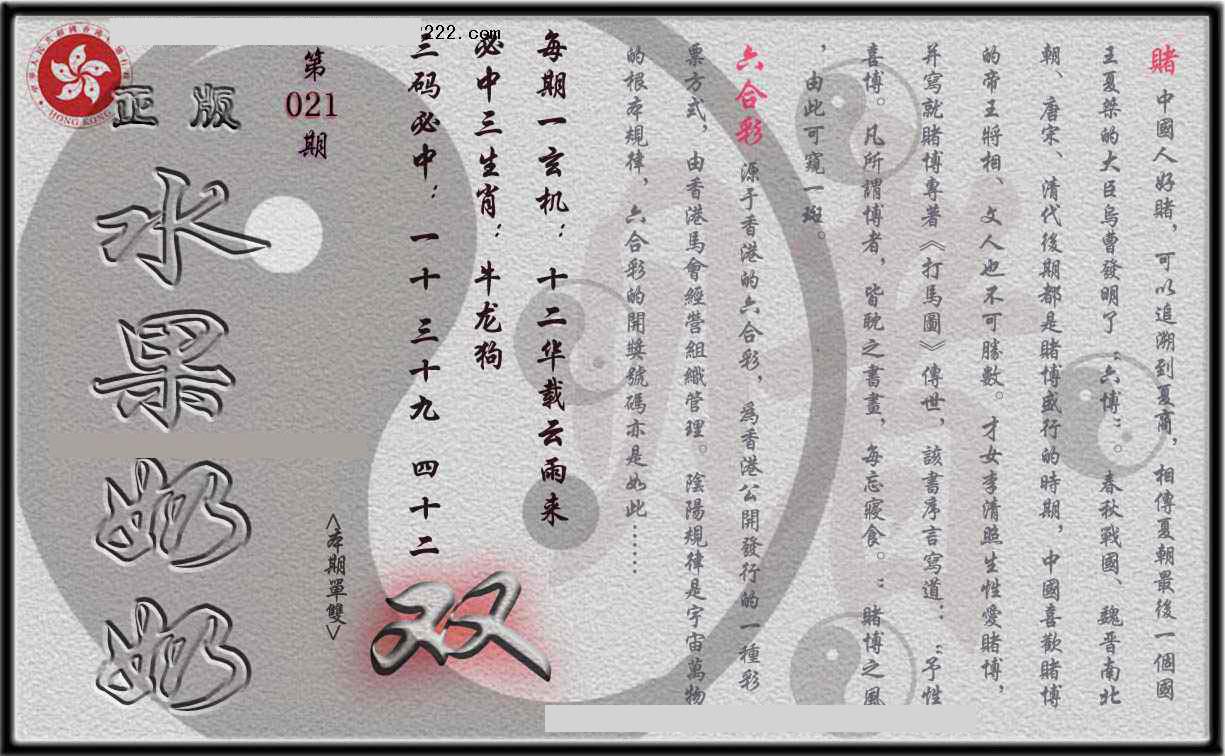 222.com
正版
水果奶奶
第
021
期
<本期單雙>
双
三码必中：一十 三十九 四十二
必中三生肖：牛龙狗
每期一玄机：十二华载云雨来
賭 中國人好賭，可以追溯到夏商，相傳夏朝最後一個國
王夏桀的大臣烏曹發明了“六博”。春秋戰國、魏晋南北
朝、唐宋、清代後期都是賭博盛行的時期，中國喜歡賭博
的帝王將相、文人也不可勝數。才女李清照生性愛賭博，
并寫就賭博專著《打馬圖》傳世，該書序言寫道：“予性
喜博。凡所謂博者，皆耽之書畫，每忘寢食。”賭博之風
，由此可窺一斑。
六合彩 源于香港的六合彩，爲香港公開發行的一種彩
票方式，由香港馬會經營組織管理。陰陽規律是宇宙萬物
的根本規律，六合彩的開獎號碼亦是如此……
HONG KONG